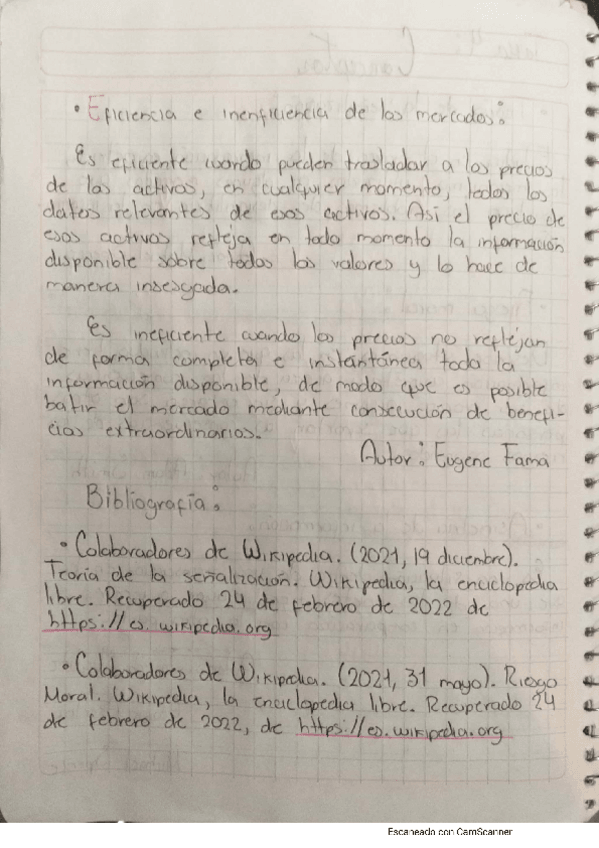 • Eficiencia e inenficiencia de los mercados:
Es eficiente cuando pueden trasladar a los precios
de los activos, en cualquier momento, todos los
datos relevantes de esos activos. Así el precio de
esos activos refleja en todo momento la información
disponible sobre todos los valores y lo hace de
manera insesgada.
Es ineficiente cuando los precios no reflejan
de forma completa e instantánea toda la
información disponible, de modo que es posible
batir el mercado mediante consecución de benefi-
cios extraordinarios.
Autor: Eugene Fama
Bibliografía:
• Colaboradores de Wikipedia. (2021, 19 diciembre).
Teoría de la señalización. Wikipedia, la enciclopedia
libre. Recuperado 24 de febrero de 2022 de
https://es.wikipedia.org
• Colaboradores de Wikipedia. (2021, 31 mayo). Riesgo
Moral. Wikipedia, la enciclopedia libre. Recuperado 24
de febrero de 2022, de https://es.wikipedia.org
Escaneado con CamScanner